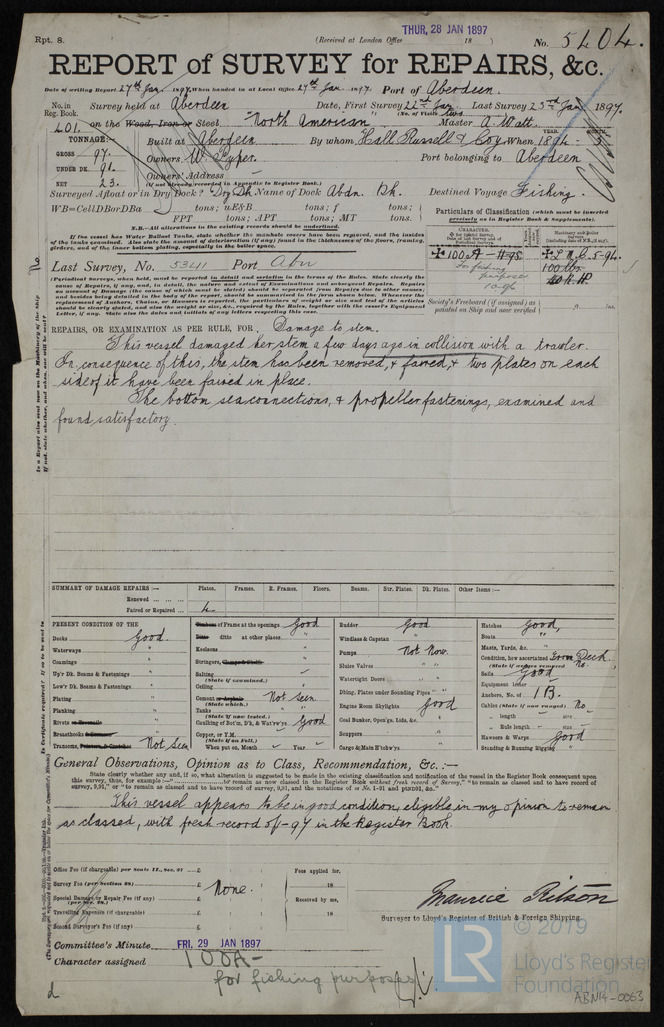 THUR, 28 JAN 1897
Rpt. 8.
(Received at London Office 18 )
No. 5404.
REPORT of SURVEY for REPAIRS, &c.
Date of writing Report 27th Jan. 1897. When handed in at Local Office 27th Jan. 1897. Port of Aberdeen.
No. in Reg. Book.
Survey held at Aberdeen
Date, First Survey 22nd Jan. Last Survey 25th Jan. 1897.
(No. of Visits two)
401. on the Wood, Iron or Steel "North American" Master A. Watt.
TONNAGE:—
GROSS 97.
UNDER DK. 91.
NET 23.
Built at Aberdeen By whom Hall Russell & Coy. When 1894 - 5
YEAR. MONTH.
Owners W. Pyper. Port belonging to Aberdeen
Owners' Address
(If not already recorded in Appendix to Register Book.)
Surveyed Afloat or in Dry Dock? Dry Dk Name of Dock Abdn. Dk. Destined Voyage Fishing.
WB=CellDBorDBa tons; uE&B tons; f tons;
FPT tons; APT tons; MT tons.
N.B.—All alterations in the existing records should be underlined.
If the vessel has Water Ballast Tanks, state whether the manhole covers have been removed, and the insides of the tanks examined. Also state the amount of deterioration (if any) found in the thicknesses of the floors, framing, girders, and of the inner bottom plating, especially in the boiler space.
Particulars of Classification (which must be inserted precisely as in Register Book & Supplements).
CHARACTER.
100A
For fishing purposes
L.M.C. 5-94.
Last Survey, No. 5341 Port Abn
(Periodical Surveys, when held, must be reported in detail and seriatim in the terms of the Rules. State clearly the cause of Repairs, if any, and, in detail, the nature and extent of Examinations and subsequent Repairs.
Society's Freeboard (if assigned) as painted on Ship and now verified
REPAIRS, OR EXAMINATION AS PER RULE, FOR Damage to stem.
This vessel damaged her stem a few days ago in collision with a trawler.
In consequence of this, the stem has been removed, & faired, & two plates on each
side of it have been faired in place.
The bottom sea connections, & propeller fastenings, examined and
found satisfactory.
SUMMARY OF DAMAGE REPAIRS :— Plates. Frames. R. Frames. Floors. Beams. Str. Plates. Dk. Plates. Other Items:—
Renewed
Faired or Repaired 4
PRESENT CONDITION OF THE
Decks Good.
Waterways "
Coamings "
Up'r Dk. Beams & Fastenings "
Low'r Dk. Beams & Fastenings "
Plating "
Planking
Rivets "
Breasthooks "
Transoms, Not Seen
of Frame at the openings Good
ditto at other places "
Keelsons "
Stringers, "
Salting
(State if examined.)
Ceiling "
Cement Not Seen.
(State which.)
Tanks
(State if now tested.)
Caulking of Bot'm, D'k, & Wat'rw'ys Good
Copper, or Y.M.
(State if on Felt.)
When put on, Month " Year "
Rudder Good
Windlass & Capstan "
Pumps Not Now.
Sluice Valves " "
Watertight Doors " "
Dblng. Plates under Sounding Pipes " "
Engine Room Skylights Good
Coal Bunker, Open'gs, Lids, &c. "
Scuppers "
Cargo & Main H'tchw'ys "
Hatches Good,
Boats "
Masts, Yards, &c. "
Condition, how ascertained From Deck.
(State if wedges removed No.
Sails Good
Equipment letter
Anchors, No. of 1 B.
Cables (State if now ranged) No.
„ length size
„ Rule length size
Hawsers & Warps Good
Standing & Running Rigging "
General Observations, Opinion as to Class, Recommendation, &c. :—
State clearly whether any and, if so, what alteration is suggested to be made in the existing classification and notification of the vessel in the Register Book consequent upon
This vessel appears to be in good condition, eligible in my opinion to remain
as classed, with fresh record of - 97 in the Register Book.
Office Fee (if chargeable) per Scale II., Sec. 21 £
Survey Fee (per Section 28) £ None.
Special Damage or Repair Fee (if any) £
(per Sec. 28.)
Travelling Expenses (if chargeable) £
Second Surveyor's Fee (if any) £
Fees applied for,
18
Received by me,
18
Maurice Ritson
Surveyor to Lloyd's Register of British & Foreign Shipping.
Committee's Minute FRI. 29 JAN 1897
Character assigned 100A-
for fishing purposes
LR
© 2019
Lloyd's Register
Foundation
ABN14-0063